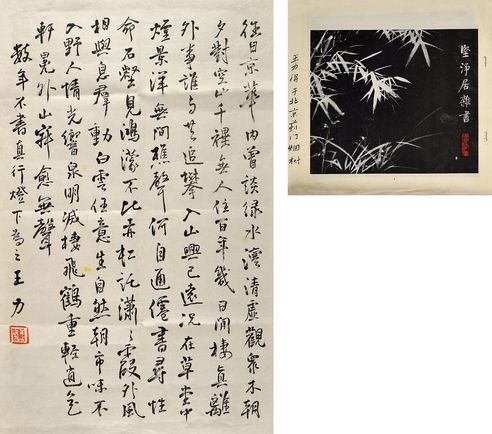 往日京華內曾談綠水濱清虛觀眾木朝
夕對空山千裡無人住百年幾日閒棲真離
外事誰與共追攀入山興已遠況在草堂中
煙景洋無間樵聲何自通僊書尋性
命石壑見鴻濛不比赤松託瀟〻霞外風
相與息群動白雲任意生自然朝市味不
入野人情光響泉明滅棲飛鶴重輕逍邑
軒冕外山癖愈無聲
數年不書真行燈下為之王力
堅淨居雜書
王力得于北京前门烟树